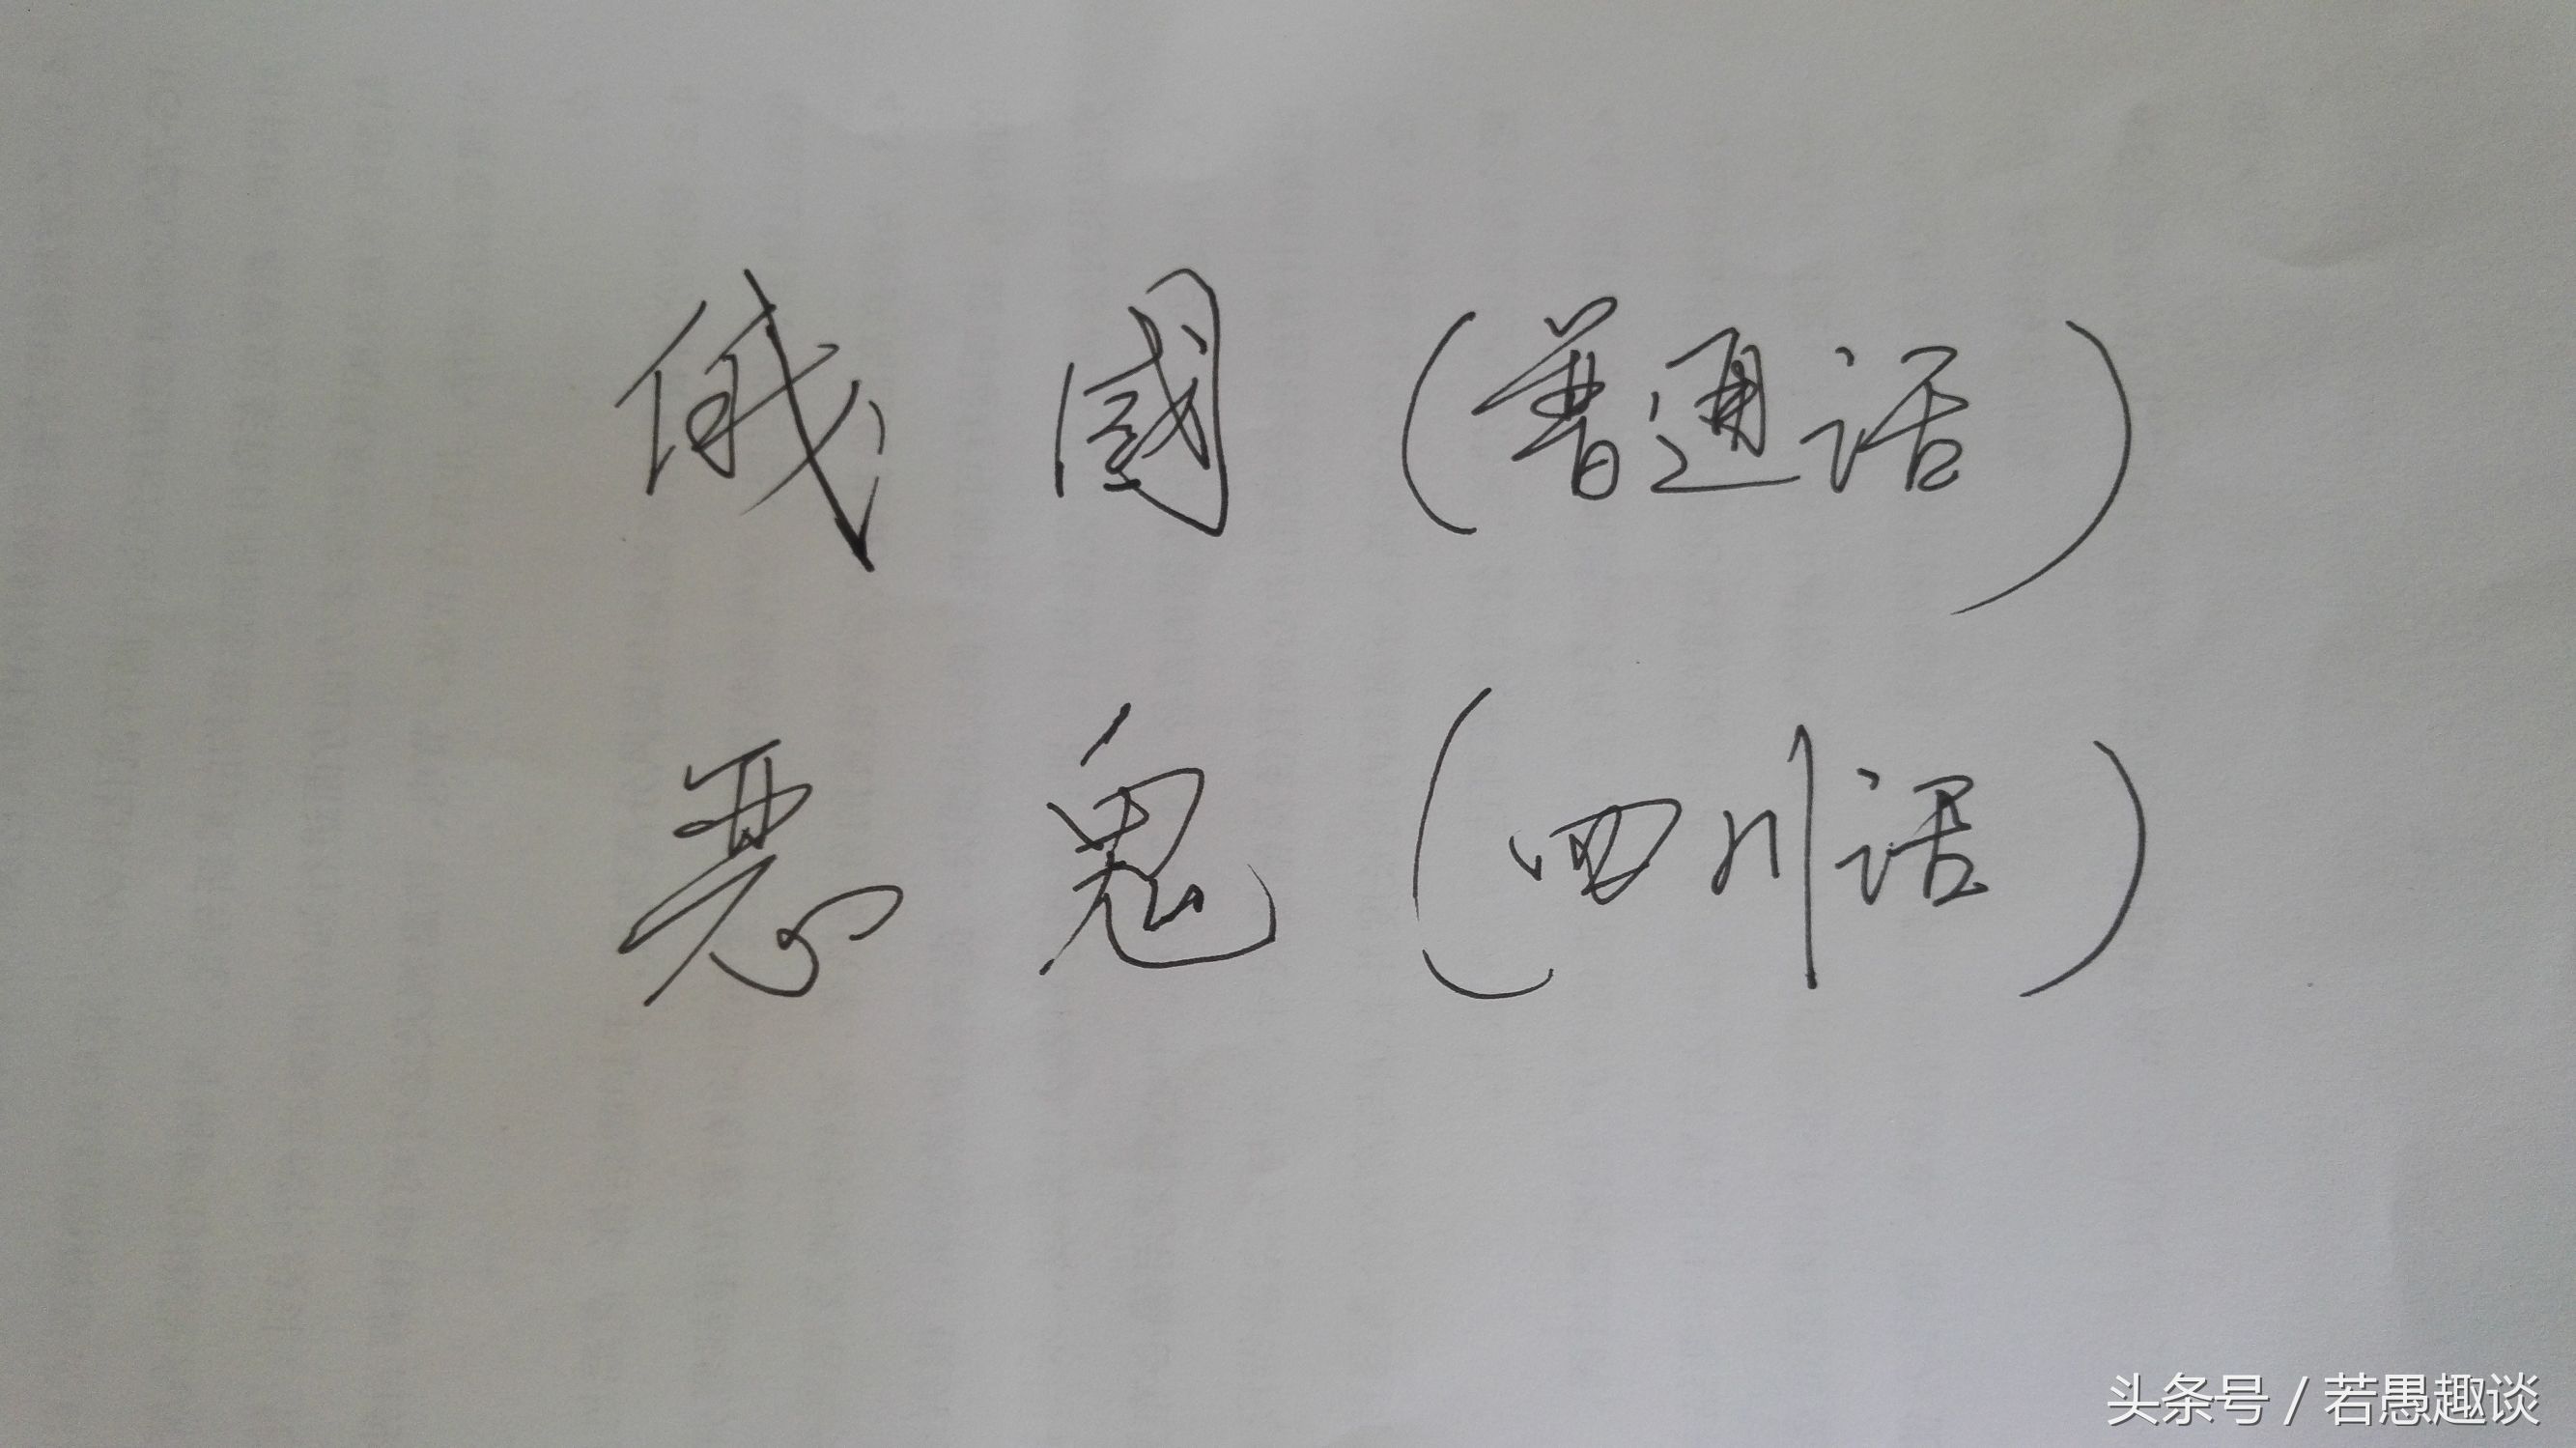 俄國（普通话）
恶鬼（四川话）
头条号 / 若愚趣谈